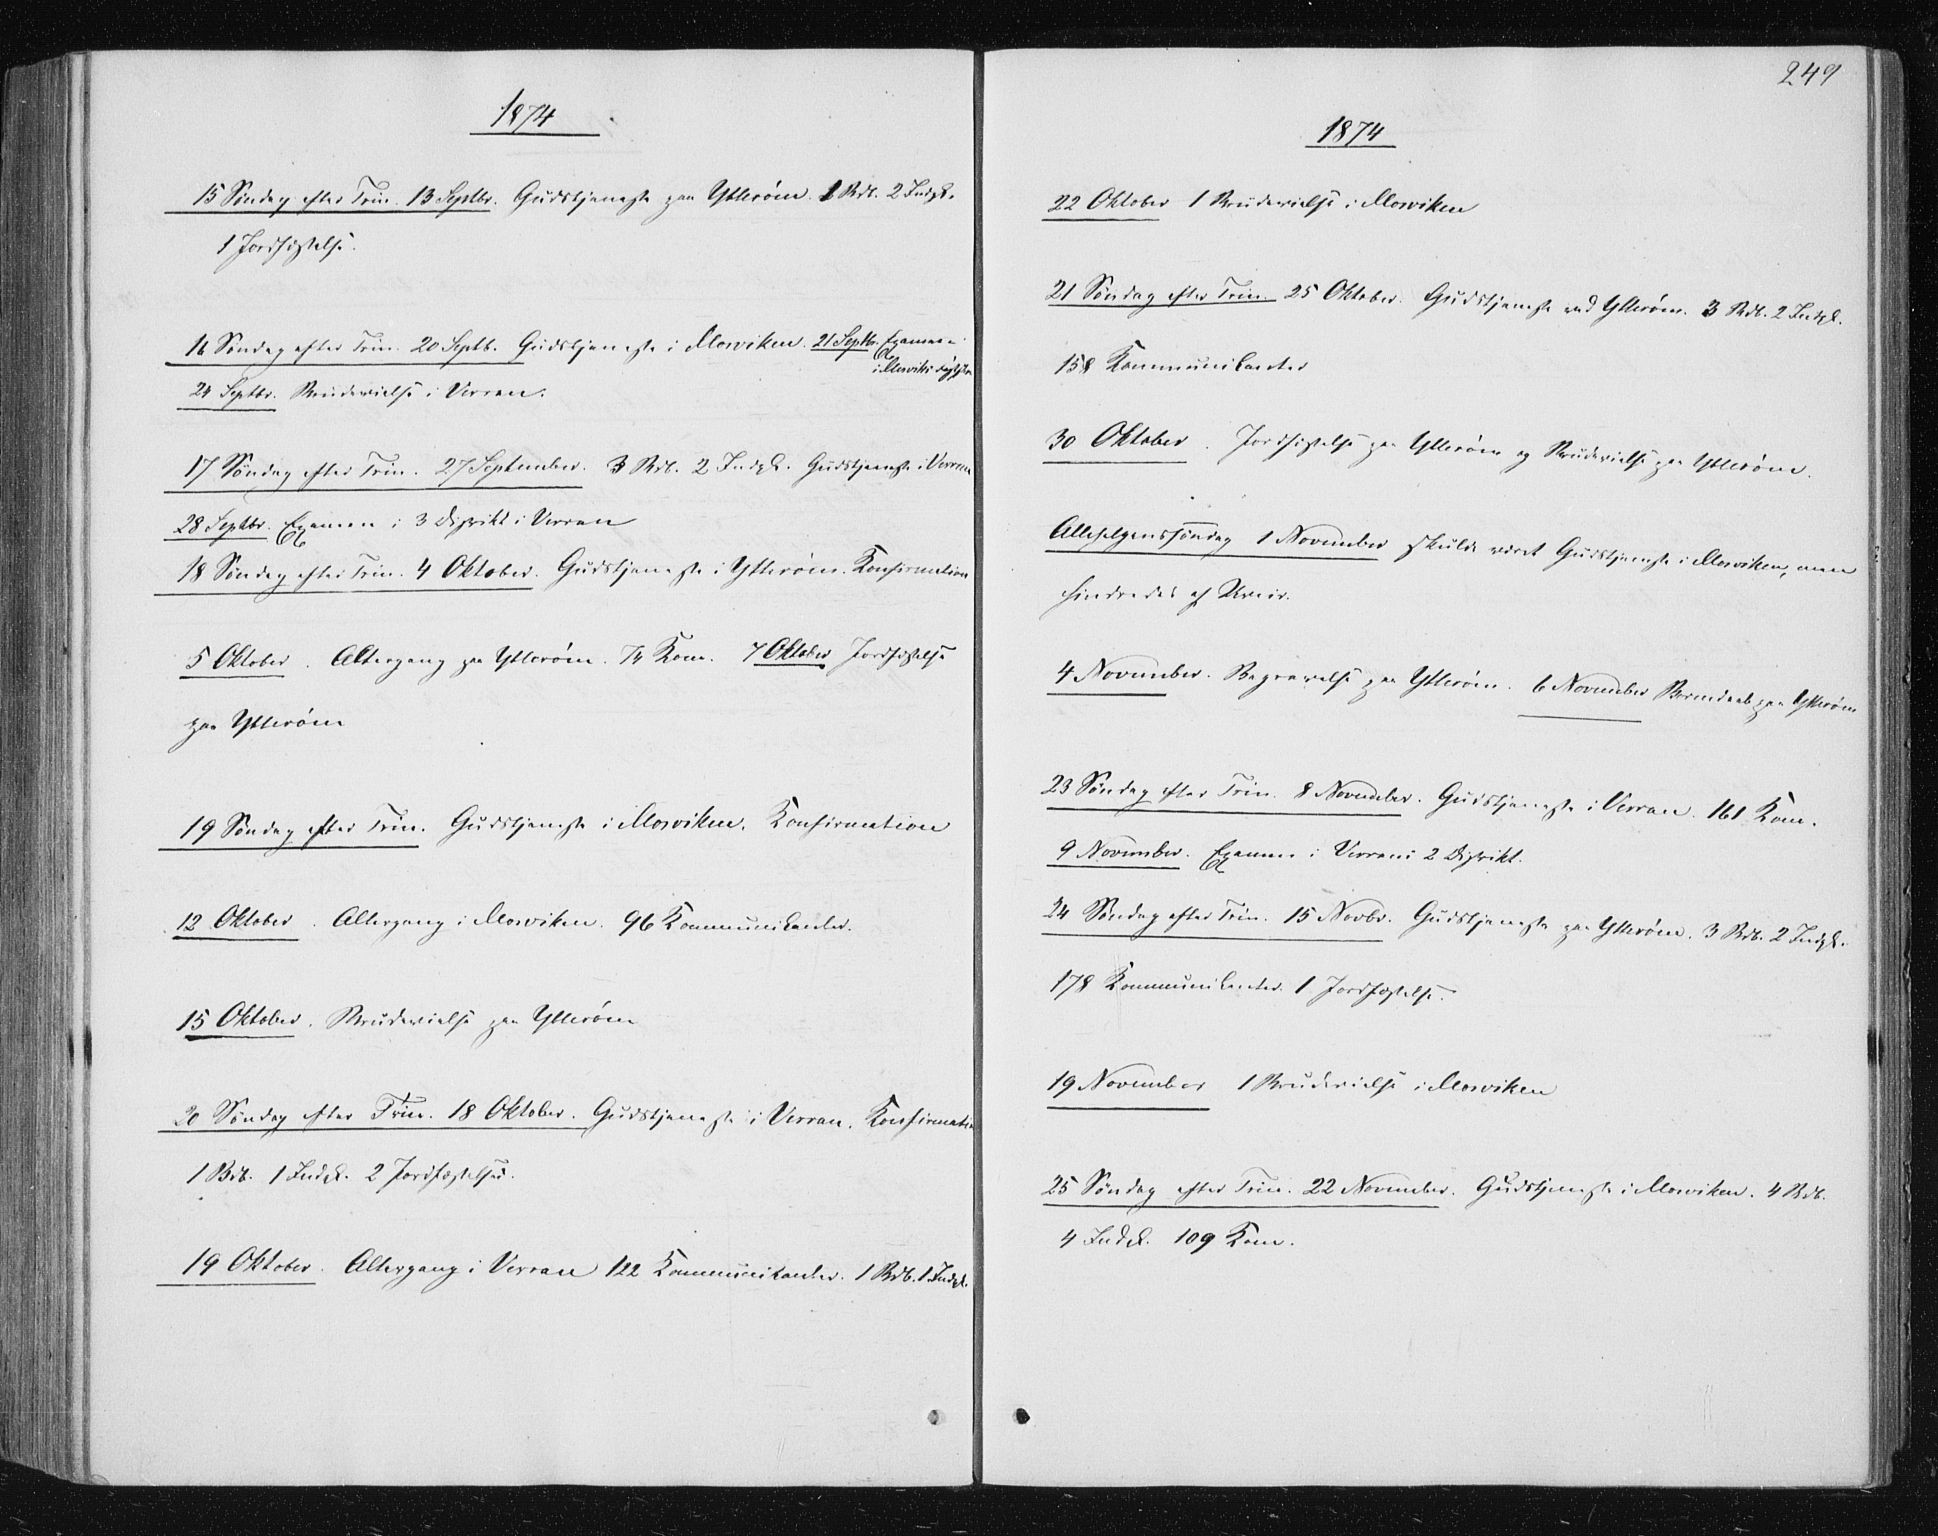 1874
15 Søndag efter Trin. 13 Septbr. Gudstjeneste paa Ytterøen. 1 Brb. 2 Indgk.
1 Jordfæstelse.
16 Søndag efter Trin. 20 Septb. Gudstjeneste i Mosviken. 21 Septbr. Examen
i Mosvikens
24 Septbr. Brudevielse i Verran.
17 Søndag efter Trin. 27 September. 3 Brb. 2 Indgk. Gudstjeneste i Verran
28 Septbr. Examen i 3 Distrikt i Verran
18 Søndag efter Trin. 4 Oktober. Gudstjeneste i Ytterøen. Konfirmation
5 Oktober. Altergang paa Ytterøen. 74 Kom. 7 Oktober Jordfæstelse
paa Ytterøen
19 Søndag efter Trin. Gudstjeneste i Mosviken. Konfirmation
12 Oktober. Altergang i Mosviken. 96 Kommunikanter.
15 Oktober. Brudevielse paa Ytterøen
20 Søndag efter Trin. 18 Oktober. Gudstjeneste i Verran. Konfirmation
1 Brb. 1 Indgk. 2 Jordfæstelser.
19 Oktober. Altergang i Verran 122 Kommunikanter. 1 Brb. 1 Indgk.
249
1874
22 Oktober 1 Brudevielse i Mosviken
21 Søndag efter Trin. 25 Oktober. Gudstjeneste ved Ytterøen. 3 Brb. 2 Indgk.
158 Kommunikanter
30 Oktober. Jordfæstelse paa Ytterøen og Brudevielse paa Ytterøen.
Allehelgenssøndag 1 November skulde været Gudstjeneste i Mosviken, men
hindredes af Uveir.
4 November. Begravelse paa Ytterøen. 6 November paa Ytterøen
23 Søndag efter Trin. 8 November. Gudstjeneste i Verran. 161 Kom.
9 November. Examen i Verrans 2 Distrikt.
24 Søndag efter Trin. 15 Novbr. Gudstjeneste paa Ytterøen. 3 Brb. 2 Indgk.
178 Kommunikanter. 1 Jordfæstelse.
19 November 1 Brudevielse i Mosviken
25 Søndag efter Trin. 22 November. Gudstjeneste i Mosviken. 4 Brb.
4 Indgk. 109 Kom.